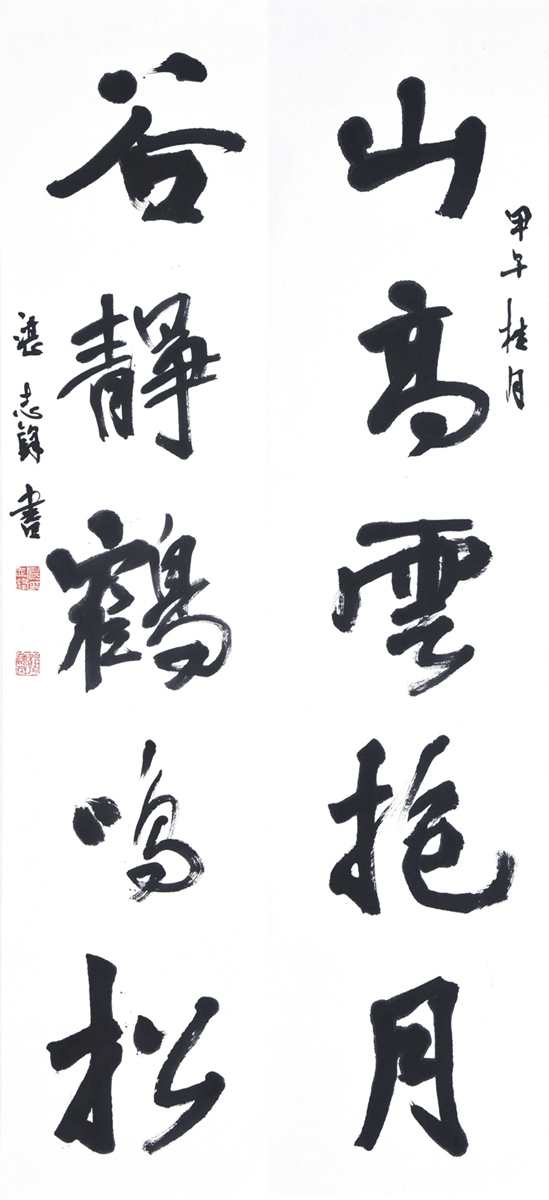 甲午桂月
山高雲抱月
谷靜鶴鳴松
湛志鋒書